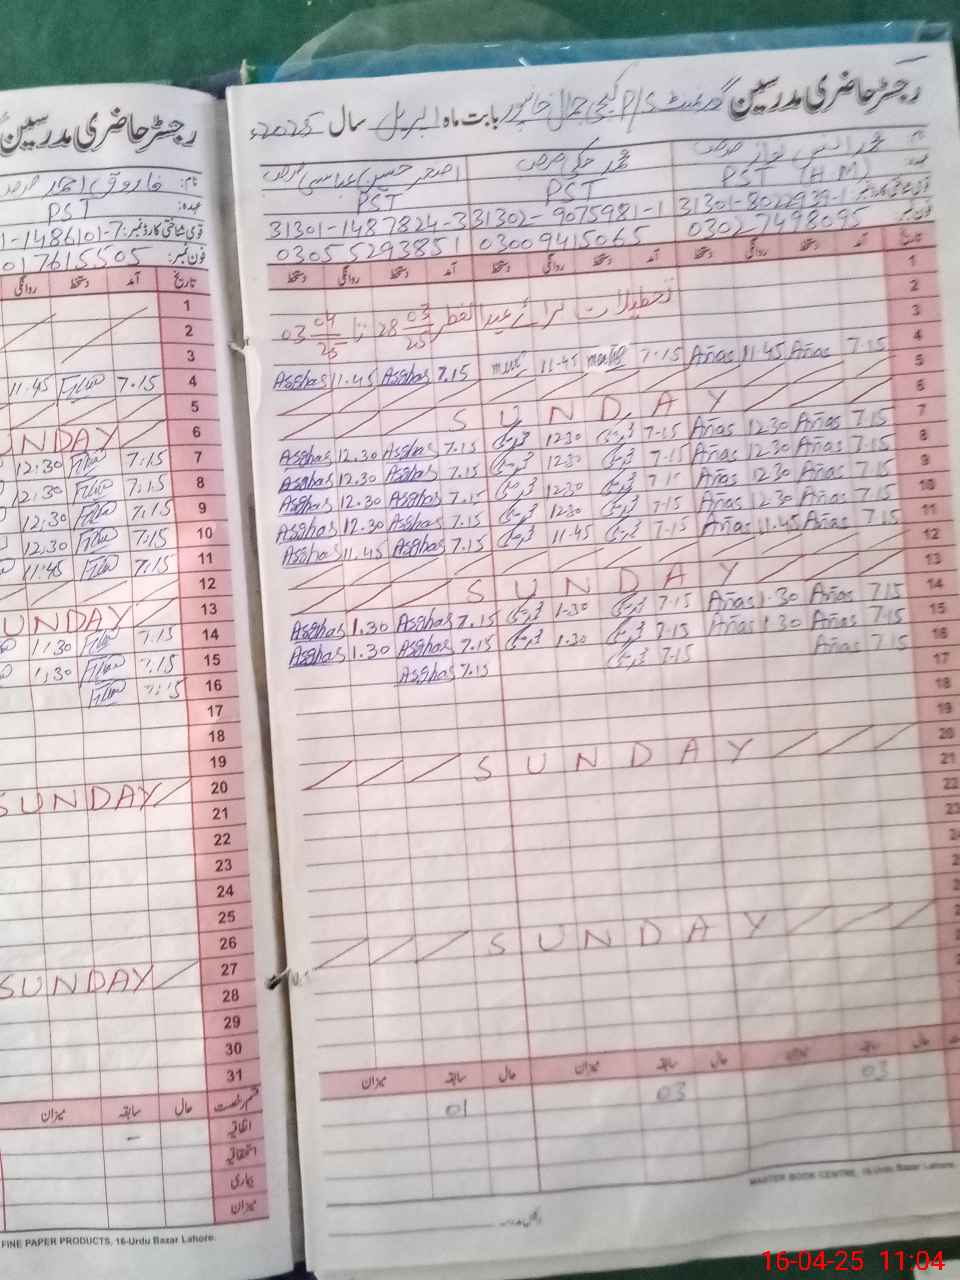 رجسٹر حاضری مدرسین
نام: فاروق احمد
عہدہ: PST
قومی شناختی کارڈ نمبر: 1-1486101-7
فون نمبر: 017615505
تاریخ آمد دستخط روانگی
1
2
3
4 7.15 11.45
5
6 SUNDAY
7 7.15 12.30
8 7.15 12.30
9 7.15 12.30
10 7.15 12.30
11 7.15 11.45
12
13 SUNDAY
14 7.15 1.30
15 7.15 1.30
16 7.15
17
18
19
20 SUNDAY
21
22
23
24
25
26
27 SUNDAY
28
29
30
31
قسم رخصت حال سابقہ میزان
اتفاقیہ -
استحقاقیہ
بیماری
میزان
FINE PAPER PRODUCTS, 16-Urdu Bazar Lahore.
رجسٹر حاضری مدرسین گورنمنٹ P/S جمال خانپور بابت ماہ اپریل سال 2025ء
محمد انس نواز محمد اصغر حسین عباسی
PST (H.M) PST PST
31301-8022939-1 31302-9075981-1 31301-1487824-3
03027498095 03009415065 03055293851
تاریخ آمد دستخط روانگی دستخط آمد دستخط روانگی دستخط آمد دستخط روانگی دستخط
1
2
3 تعطیلات برائے عید الفطر 28 03/25 تا 03 04/25
4 7.15 Añas 11.45 Añas 7.15 11.45 7.15 Asghas 11.45 Asghas
5
6 SUNDAY
7 7.15 Añas 12.30 Añas 7.15 12.30 7.15 Asghas 12.30 Asghas
8 7.15 Añas 12.30 Añas 7.15 12.30 7.15 Asghas 12.30 Asghas
9 7.15 Añas 12.30 Añas 7.15 12.30 7.15 Asghas 12.30 Asghas
10 7.15 Añas 12.30 Añas 7.15 12.30 7.15 Asghas 12.30 Asghas
11 7.15 Añas 11.45 Añas 7.15 11.45 7.15 Asghas 11.45 Asghas
12
13 SUNDAY
14 7.15 Añas 1.30 Añas 7.15 1.30 7.15 Asghas 1.30 Asghas
15 7.15 Añas 1.30 Añas 7.15 1.30 7.15 Asghas 1.30 Asghas
16 7.15 Añas 7.15 7.15 Asghas
17
18
19
20 SUNDAY
21
22
23
SUNDAY
حال سابقہ میزان حال سابقہ میزان حال سابقہ میزان
03 03 01
MASTER BOOK CENTRE, 16-Urdu Bazar Lahore.
16-04-25 11:04